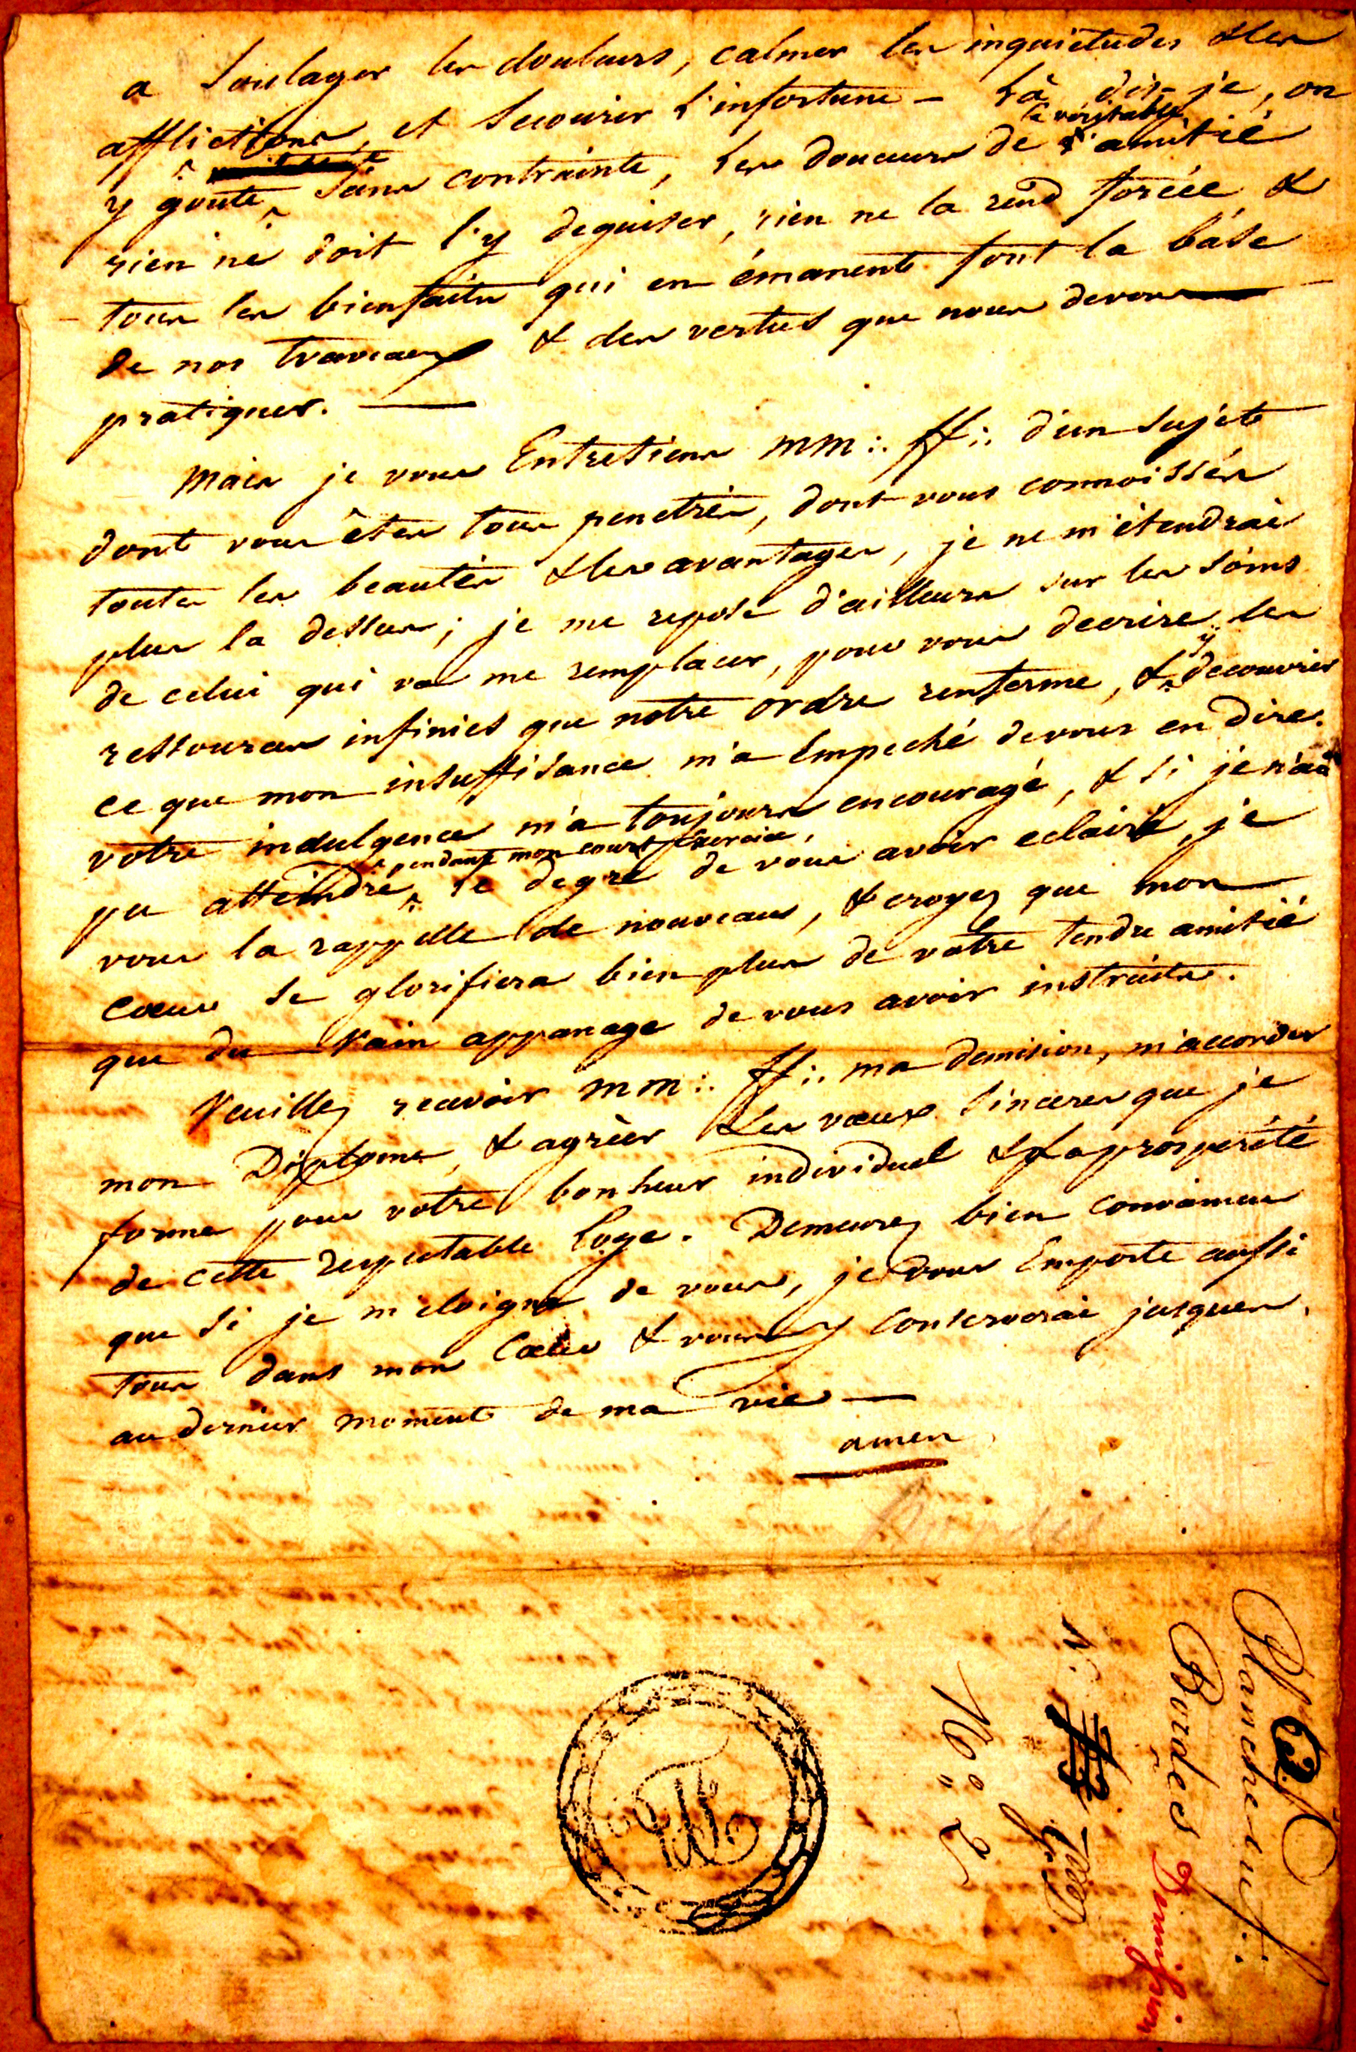 a soulager les douleurs, calmer les inquietudes & les
afflictions, et secourir l'infortune — là dis-je, on
y goute sans contrainte, les douceurs de la véritable amitié
rien ne doit l'y deguiser, rien ne la rend forcée &
tous les bienfaits qui en émanent font la báse
de nos traveaux & des vertus que nous devons —
pratiquer. —
Mais je vous Entretiens MM∴ ff∴ d'un sujet
dont vous êtes tous penetrés, dont vous connoissés
toutes les beautés & les avantages, je ne m'étendrai
plus la dessus; je me repose d'ailleurs sur les soins
de celui qui va me remplacer, pour vous decrire les
ressources infinies que notre ordre renferme, & y decouvrir
ce que mon insuffisance m'a Empeché de vous en dire.
votre indulgence m'a toujours encouragé, & si je n'ai
pu atteindre pendant mon court Exercice, le degré de vous avoir eclairé, je
vous la rappelle de nouveau, & croyez que mon
cœur se glorifiera bien plus de votre tendre amitié
que du vain appanage de vous avoir instruits.
Veuillez recevoir MM∴ ff∴ ma demision, m'accorder
mon Diplome, & agrèer les vœux sinceres que je
forme pour votre bonheur individuel & la prosperité
de cette respectable loge. Demeurez bien convaincus
que si je m'eloigne de vous, je vous Emporte aussi
tous dans mon Cœur & vous y conserverai jusques
au dernier moment de ma vie —
amen
Planche du f∴
Bordes Demission
N°
N° 2